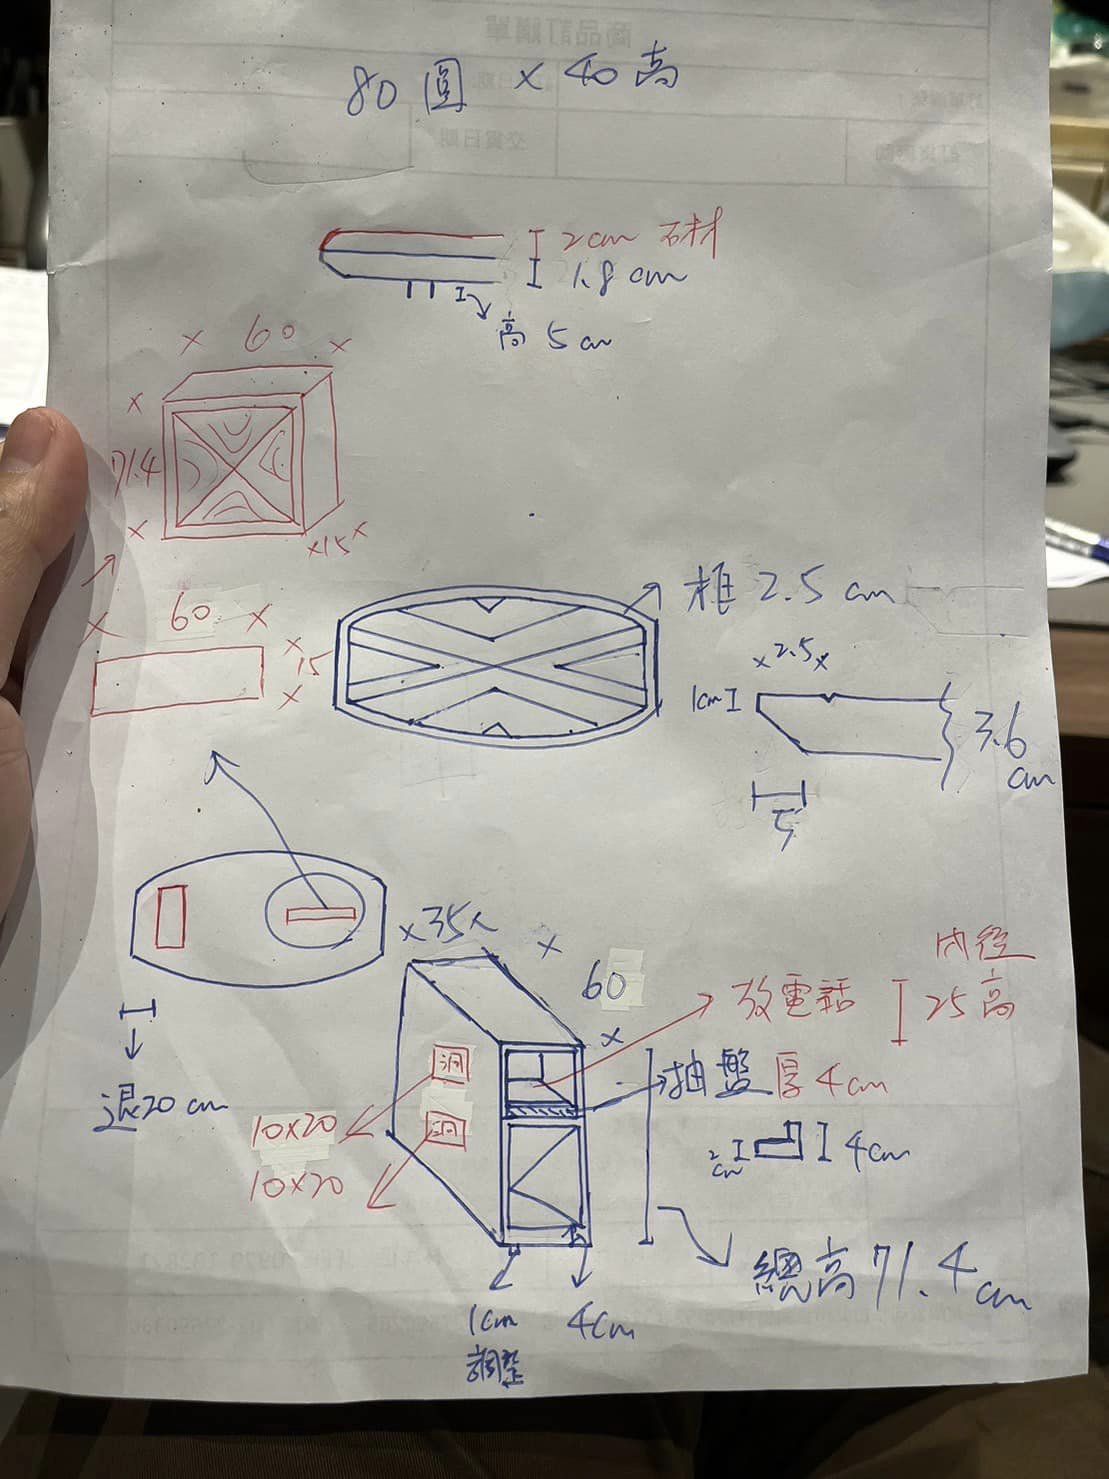 80 圓 × 40 高
2cm 石材
1.8 cm
高 5 cm
× 60 ×
×
71.4
×
×15×
× 60 ×
×
15
×
框 2.5 cm
×2.5×
1cm
3.6
cm
5
×35×
×
60
×
退20 cm
洞
洞
10×20
10×20
放電話
內徑
25 高
抽盤 厚 4cm
2
cm
4cm
總高 71.4 cm
1cm
調整
4cm